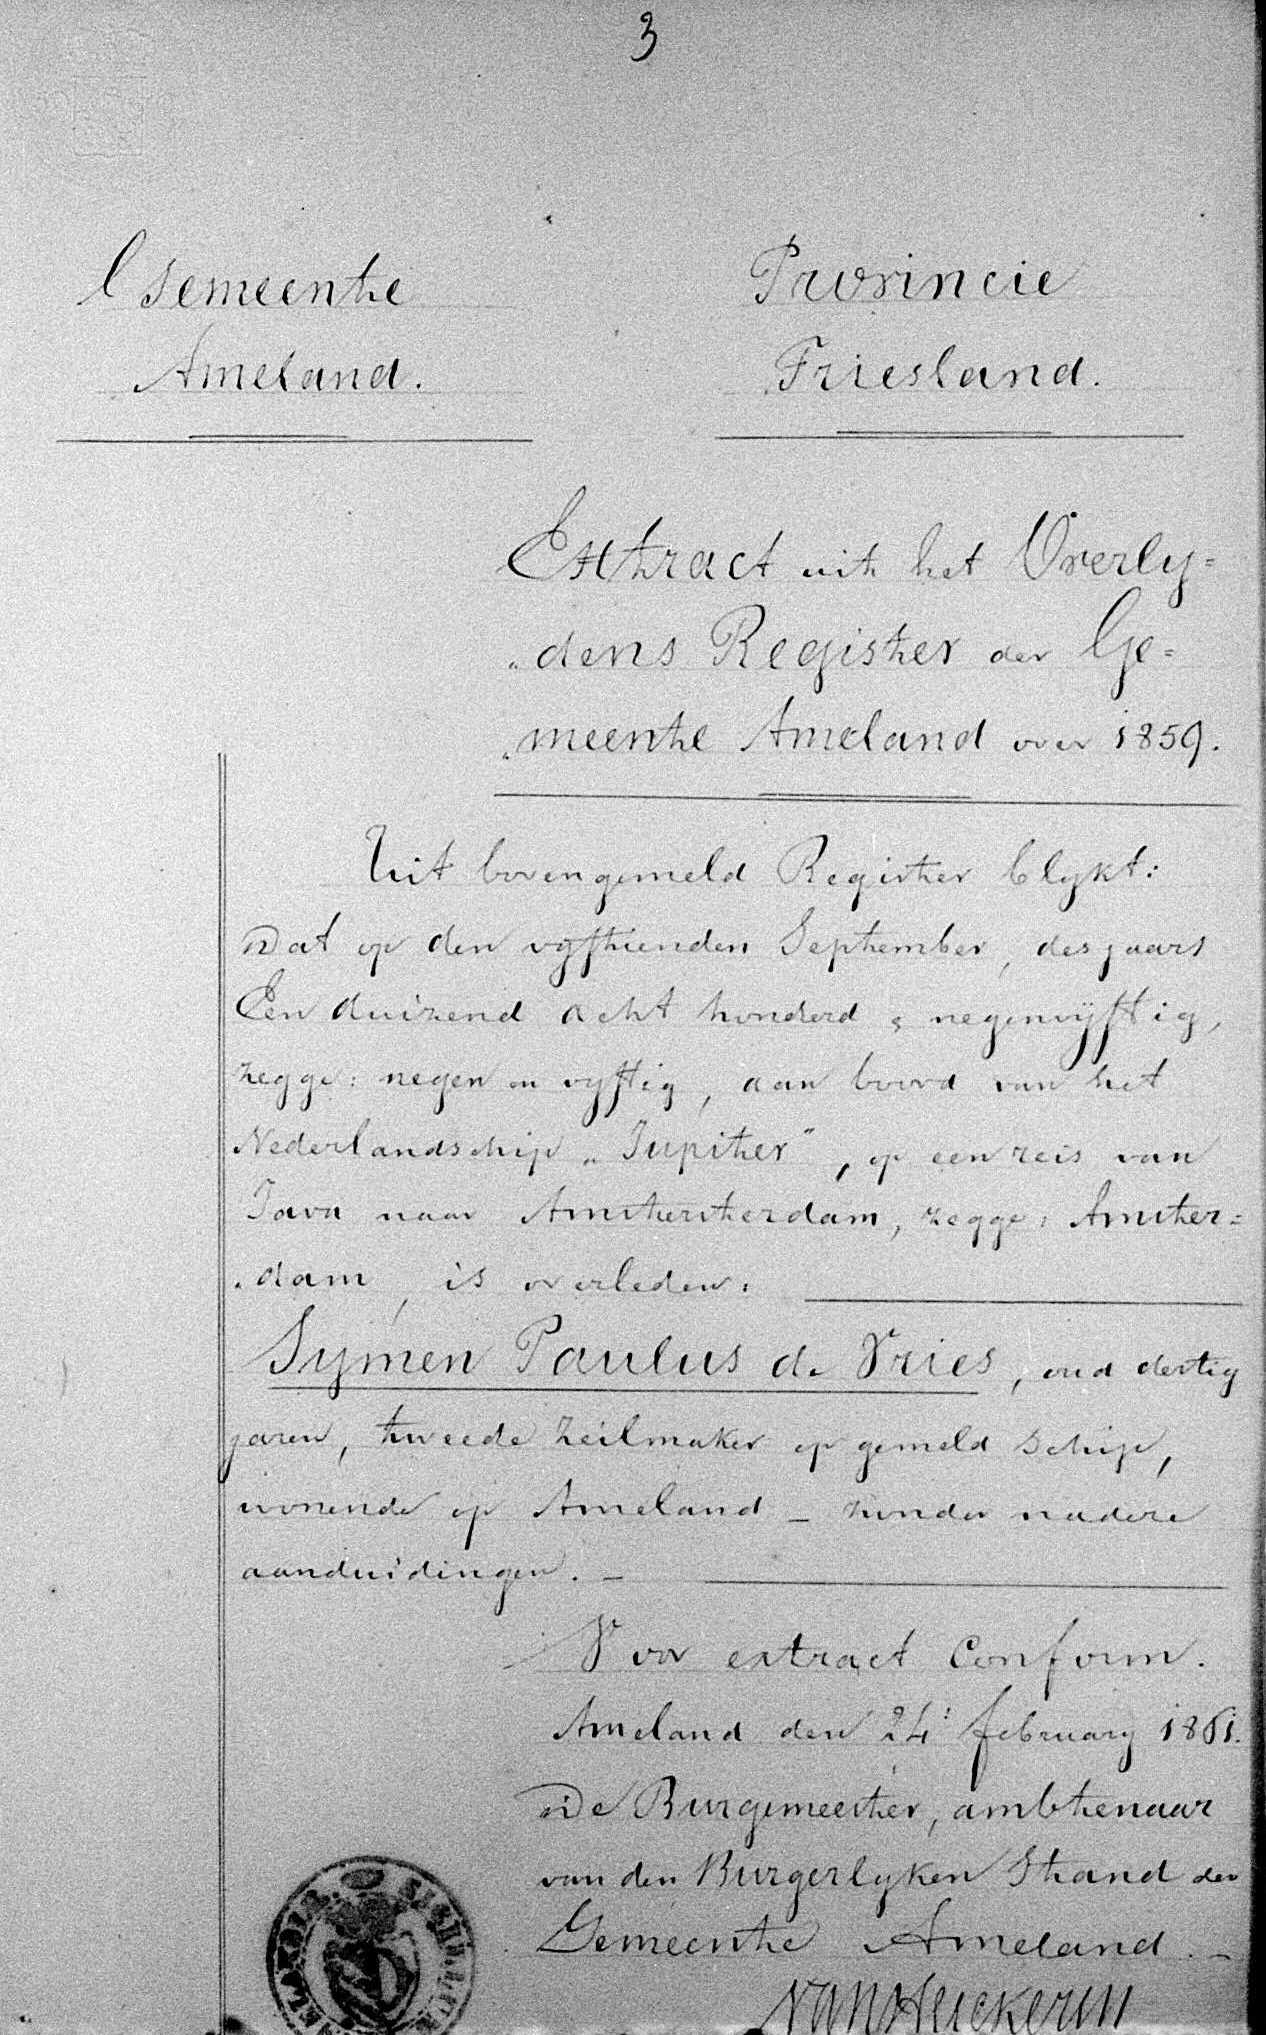 3
Gemeente
Ameland.
Provincie
Friesland.
Extract uit het Overly=
„dens Register der Ge=
„meente Ameland over 1859.
Uit bovengemeld Register blykt:
Dat op den vyftienden September, des jaars
Een duizend acht honderd & negenvyftig,
zegge: negen en vyftig, aan boord van het
Nederlandschip „Jupiter”, op een reis van
Java naar Amsterterdam, zegge: Amster=
„dam, is overleden:
Symen Paulus de Vries, oud dertig
jaren, tweede zeilmaker op gemeld schip,
wonende op Ameland – zonder nadere
aanduidingen. –
Voor extract conform.
Ameland den 24: february 1861.
De Burgemeester, ambtenaar
van den Burgerlyken Stand der
Gemeente Ameland. –
van Heeckeren